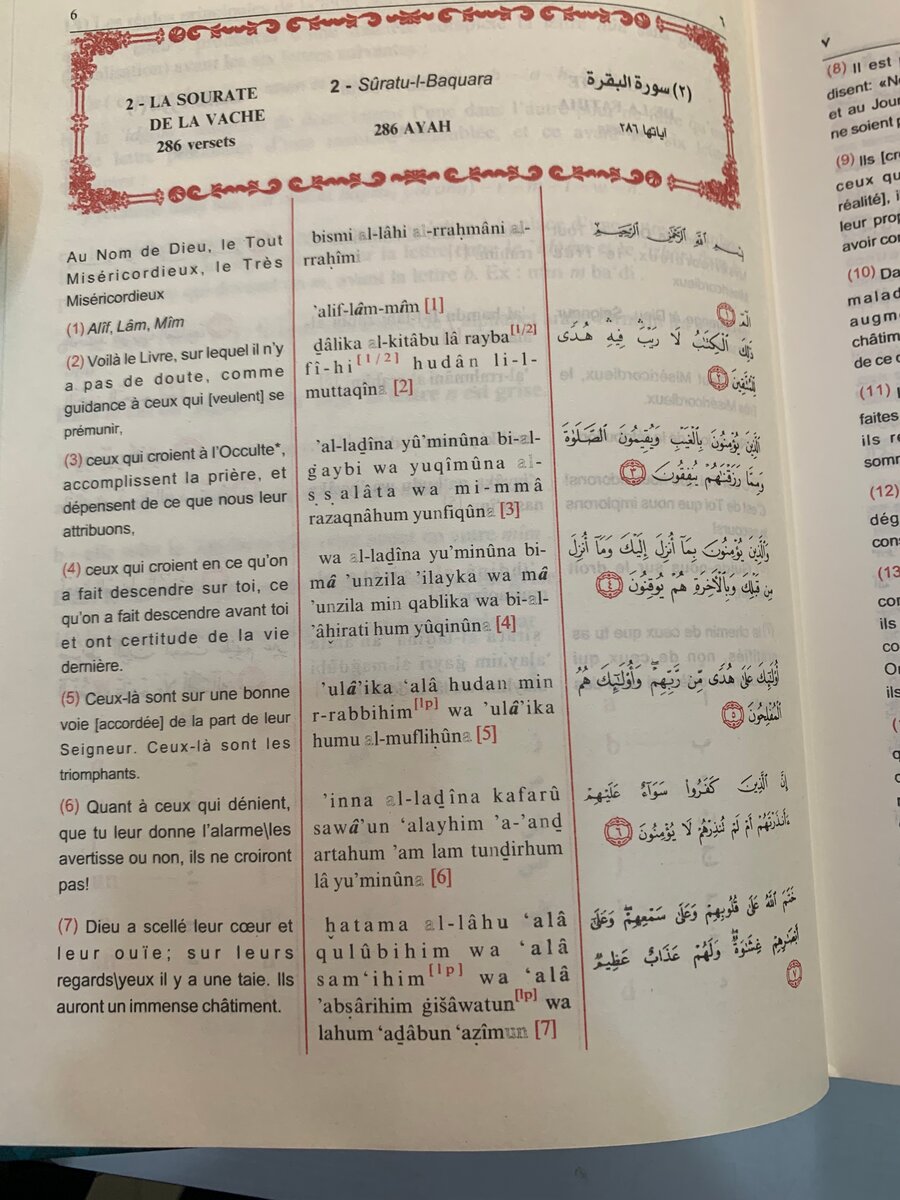 6
٦
2 - LA SOURATE
DE LA VACHE
286 versets
2 - Sûratu-l-Baquara
286 AYAH
(٢) سورة البقرة
اياتها ٢٨٦
Au Nom de Dieu, le Tout
Miséricordieux, le Très
Miséricordieux
(1) Alîf, Lâm, Mîm
(2) Voilà le Livre, sur lequel il n’y
a pas de doute, comme
guidance à ceux qui [veulent] se
prémunir,
(3) ceux qui croient à l’Occulte*,
accomplissent la prière, et
dépensent de ce que nous leur
attribuons,
(4) ceux qui croient en ce qu’on
a fait descendre sur toi, ce
qu’on a fait descendre avant toi
et ont certitude de la vie
dernière.
(5) Ceux-là sont sur une bonne
voie [accordée] de la part de leur
Seigneur. Ceux-là sont les
triomphants.
(6) Quant à ceux qui dénient,
que tu leur donne l’alarme\les
avertisse ou non, ils ne croiront
pas!
(7) Dieu a scellé leur cœur et
leur ouïe; sur leurs
regards\yeux il y a une taie. Ils
auront un immense châtiment.
bismi al-lâhi al-rraḥmâni al-
rraḥîmi
’alif-lâm-mîm [1]
ḏâlika al-kitâbu lâ rayba[1/2]
fî-hi[1/2] hudân li-l-
muttaqîna [2]
’al-laḏîna yû’minûna bi-al-
ġaybi wa yuqîmûna al-
ṣṣalâta wa mi-mmâ
razaqnâhum yunfiqûna [3]
wa al-laḏîna yu’minûna bi-
mâ ’unzila ’ilayka wa mâ
’unzila min qablika wa bi-al-
’âḫirati hum yûqinûna [4]
’ulâ’ika ‘alâ hudan min
r-rabbihim[lp] wa ’ulâ’ika
humu al-mufliḥûna [5]
’inna al-laḏîna kafarû
sawâ’un ‘alayhim ’a-’anḏ
artahum ’am lam tunḏirhum
lâ yu’minûna [6]
ḫatama al-lâhu ‘alâ
qulûbihim wa ‘alâ
sam‘ihim[lp] wa ‘alâ
’abṣârihim ġišâwatun[lp] wa
lahum ‘aḏâbun ‘aẓîmun [7]
بِسْمِ اللَّهِ الرَّحْمَٰنِ الرَّحِيمِ
الٓمٓ ١
ذَٰلِكَ الْكِتَٰبُ لَا رَيْبَ ۛ فِيهِ ۛ هُدًى
لِّلْمُتَّقِينَ ٢
الَّذِينَ يُؤْمِنُونَ بِالْغَيْبِ وَيُقِيمُونَ الصَّلَوٰةَ
وَمِمَّا رَزَقْنَٰهُمْ يُنفِقُونَ ٣
وَالَّذِينَ يُؤْمِنُونَ بِمَآ أُنزِلَ إِلَيْكَ وَمَآ أُنزِلَ
مِن قَبْلِكَ وَبِالْآخِرَةِ هُمْ يُوقِنُونَ ٤
أُو۟لَٰٓئِكَ عَلَىٰ هُدًى مِّن رَّبِّهِمْ ۖ وَأُو۟لَٰٓئِكَ هُمُ
الْمُفْلِحُونَ ٥
إِنَّ الَّذِينَ كَفَرُوا۟ سَوَآءٌ عَلَيْهِمْ
ءَأَنذَرْتَهُمْ أَمْ لَمْ تُنذِرْهُمْ لَا يُؤْمِنُونَ ٦
خَتَمَ اللَّهُ عَلَىٰ قُلُوبِهِمْ وَعَلَىٰ سَمْعِهِمْ ۖ وَعَلَىٰٓ
أَبْصَٰرِهِمْ غِشَٰوَةٌ ۖ وَلَهُمْ عَذَابٌ عَظِيمٌ
٧
٧
(8) Il est
disent: «N
et au Jour
ne soient p
(9) Ils [cr
ceux qu
réalité], i
leur prop
avoir con
(10) Da
malad
augm
châtim
de ce
(11)
faites
ils re
somm
(12)
dég
cons
(13
con
ils
co
O
ils